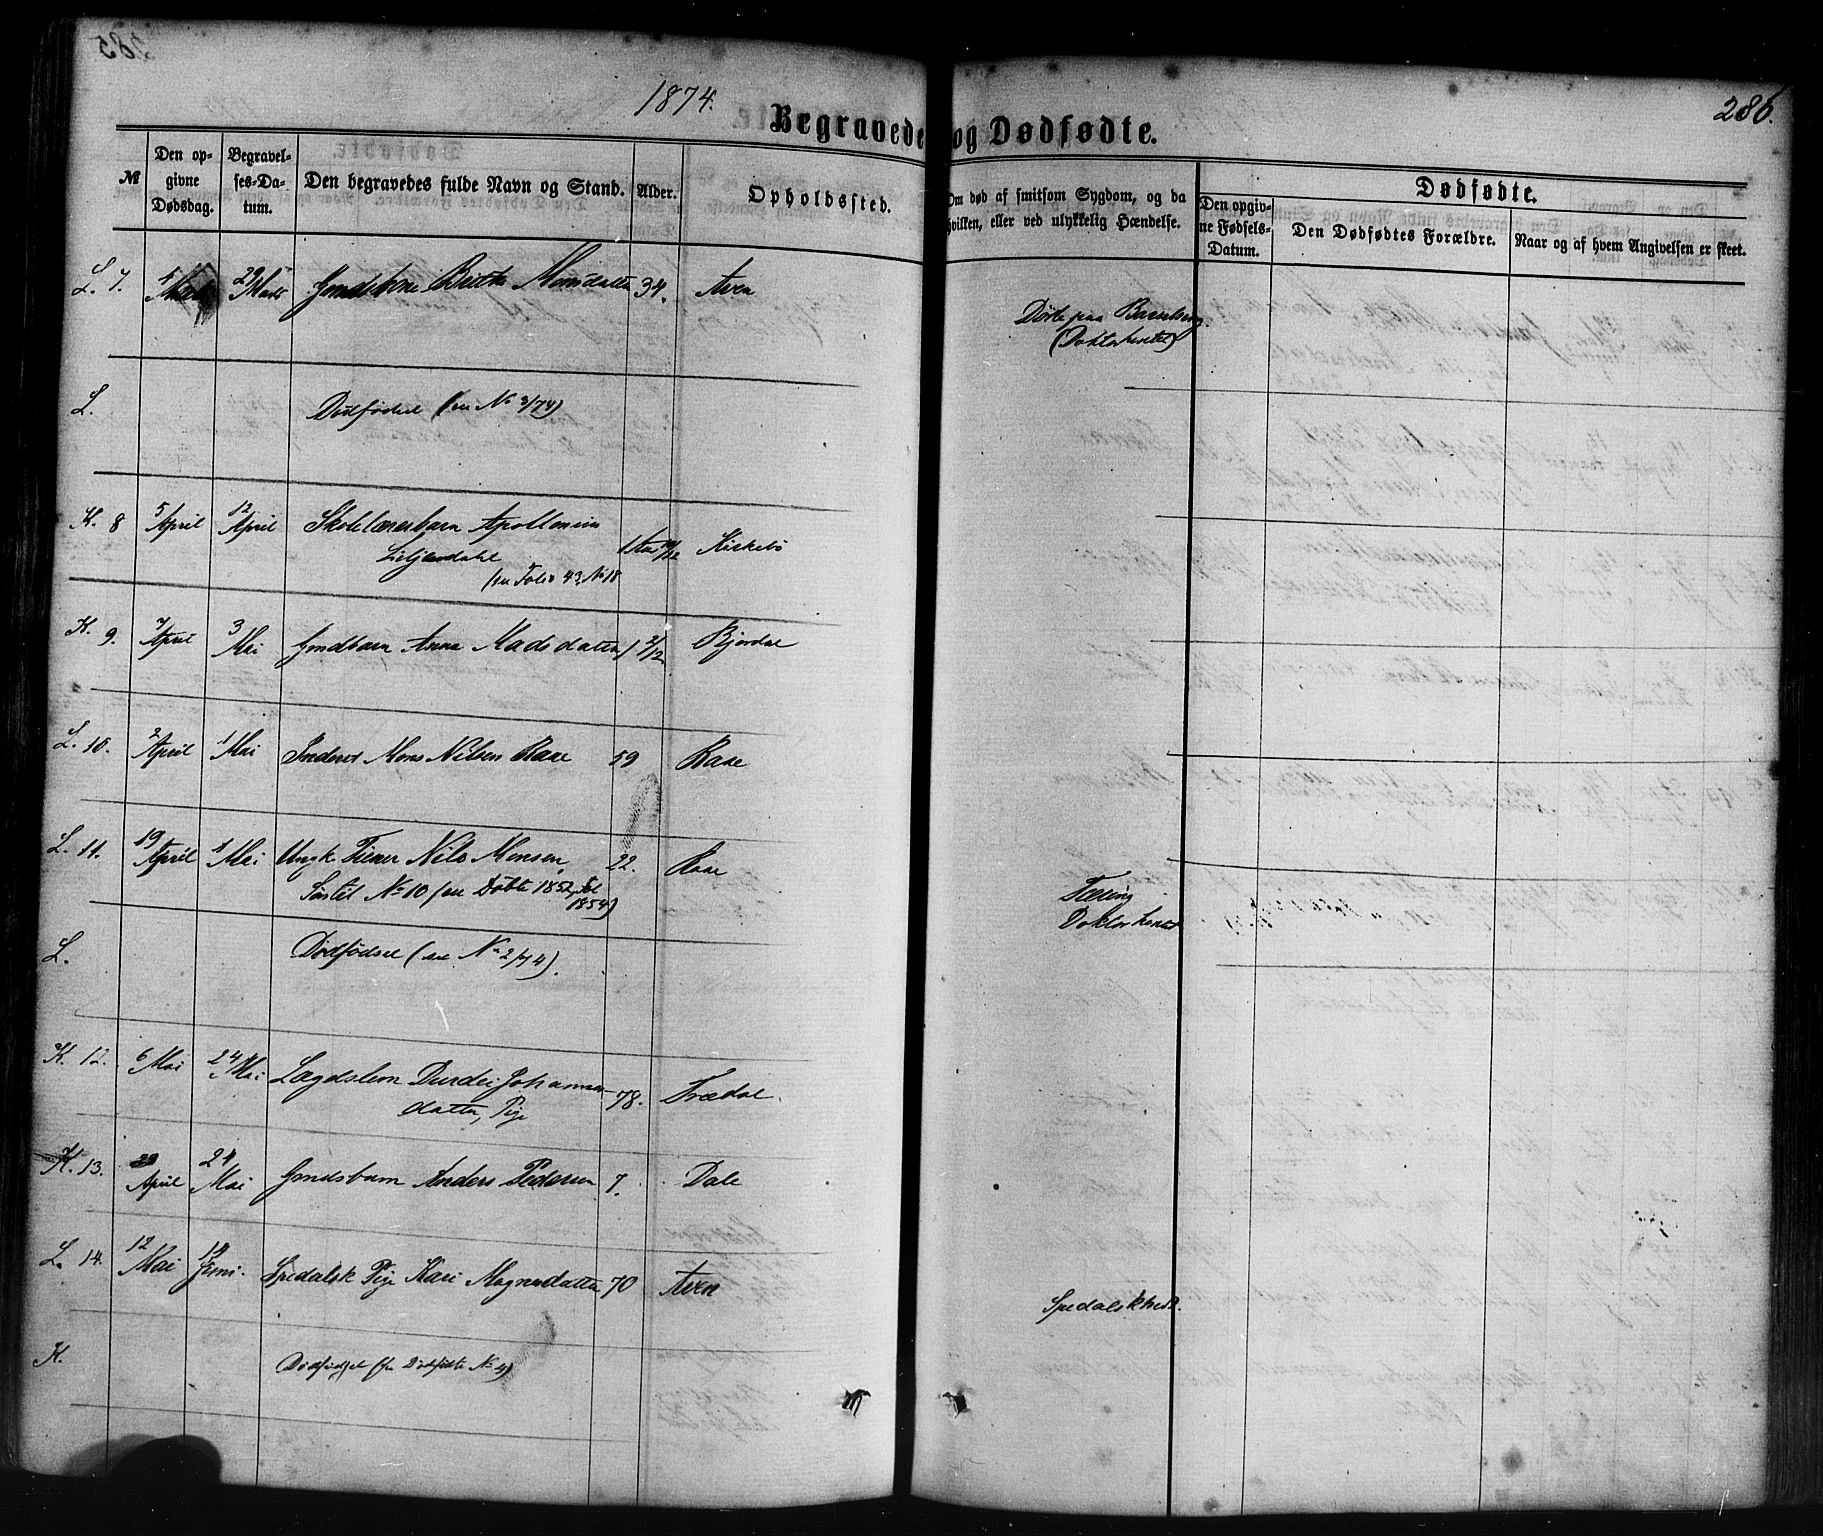 1874.
286.
Begravede og Dødfødte.
№
Den op-
givne
Dødsdag.
Begravel-
ses-Da-
tum.
Den begravedes fulde Navn og Stand.
Alder.
Opholdssted.
Om død af smitsom Sygdom, og da
hvilken, eller ved ulykkelig Hændelse.
Dødfødte.
Den opgiv-
ne Fødsels-
Datum.
Den Dødfødtes Forældre.
Naar og af hvem Angivelsen er skeet.
L. 7. 29 Marts Britta Monsdatter 34. Aven
Døde paa Barselseng.
(Doktorhentet)
L. Dødfødsel (se No 3/74)
K. 8 5 April 12 April Skolelærerbarn Apollonius
Liljendahl 1 Aar 10/12 Kirkebø
(se Folio 43. No 18
K. 9. 7 April 3 Mai Gmdbarn Anna Madsdatter 1 2/12 Bjordal
L. 10. 2 April 1 Mai Inderst Mons Nilsen Raae 59 Raae
L. 11. 19 April 1 Mai Ungk. Tiener Nils Monsen, 22. Raae
Søn til No 10 (se Døbte 1852,
1854)
Tæring
Doktorhentet
L. Dødfødsel (se No 2/74).
K. 12. 6 Mai 24 Mai Lægdslem Durdei Johannes-
datter, Pige 78. Trædal
K. 13. April 24 Mai Gmdsbarn Anders Pedersen 7. Dale
L. 14. 12 Mai Juni. Spedalsk Pige Kari Magnesdatter 70 Aven
Spedalskhed.
K. Dødfødsel (se Dødfødte No 4)